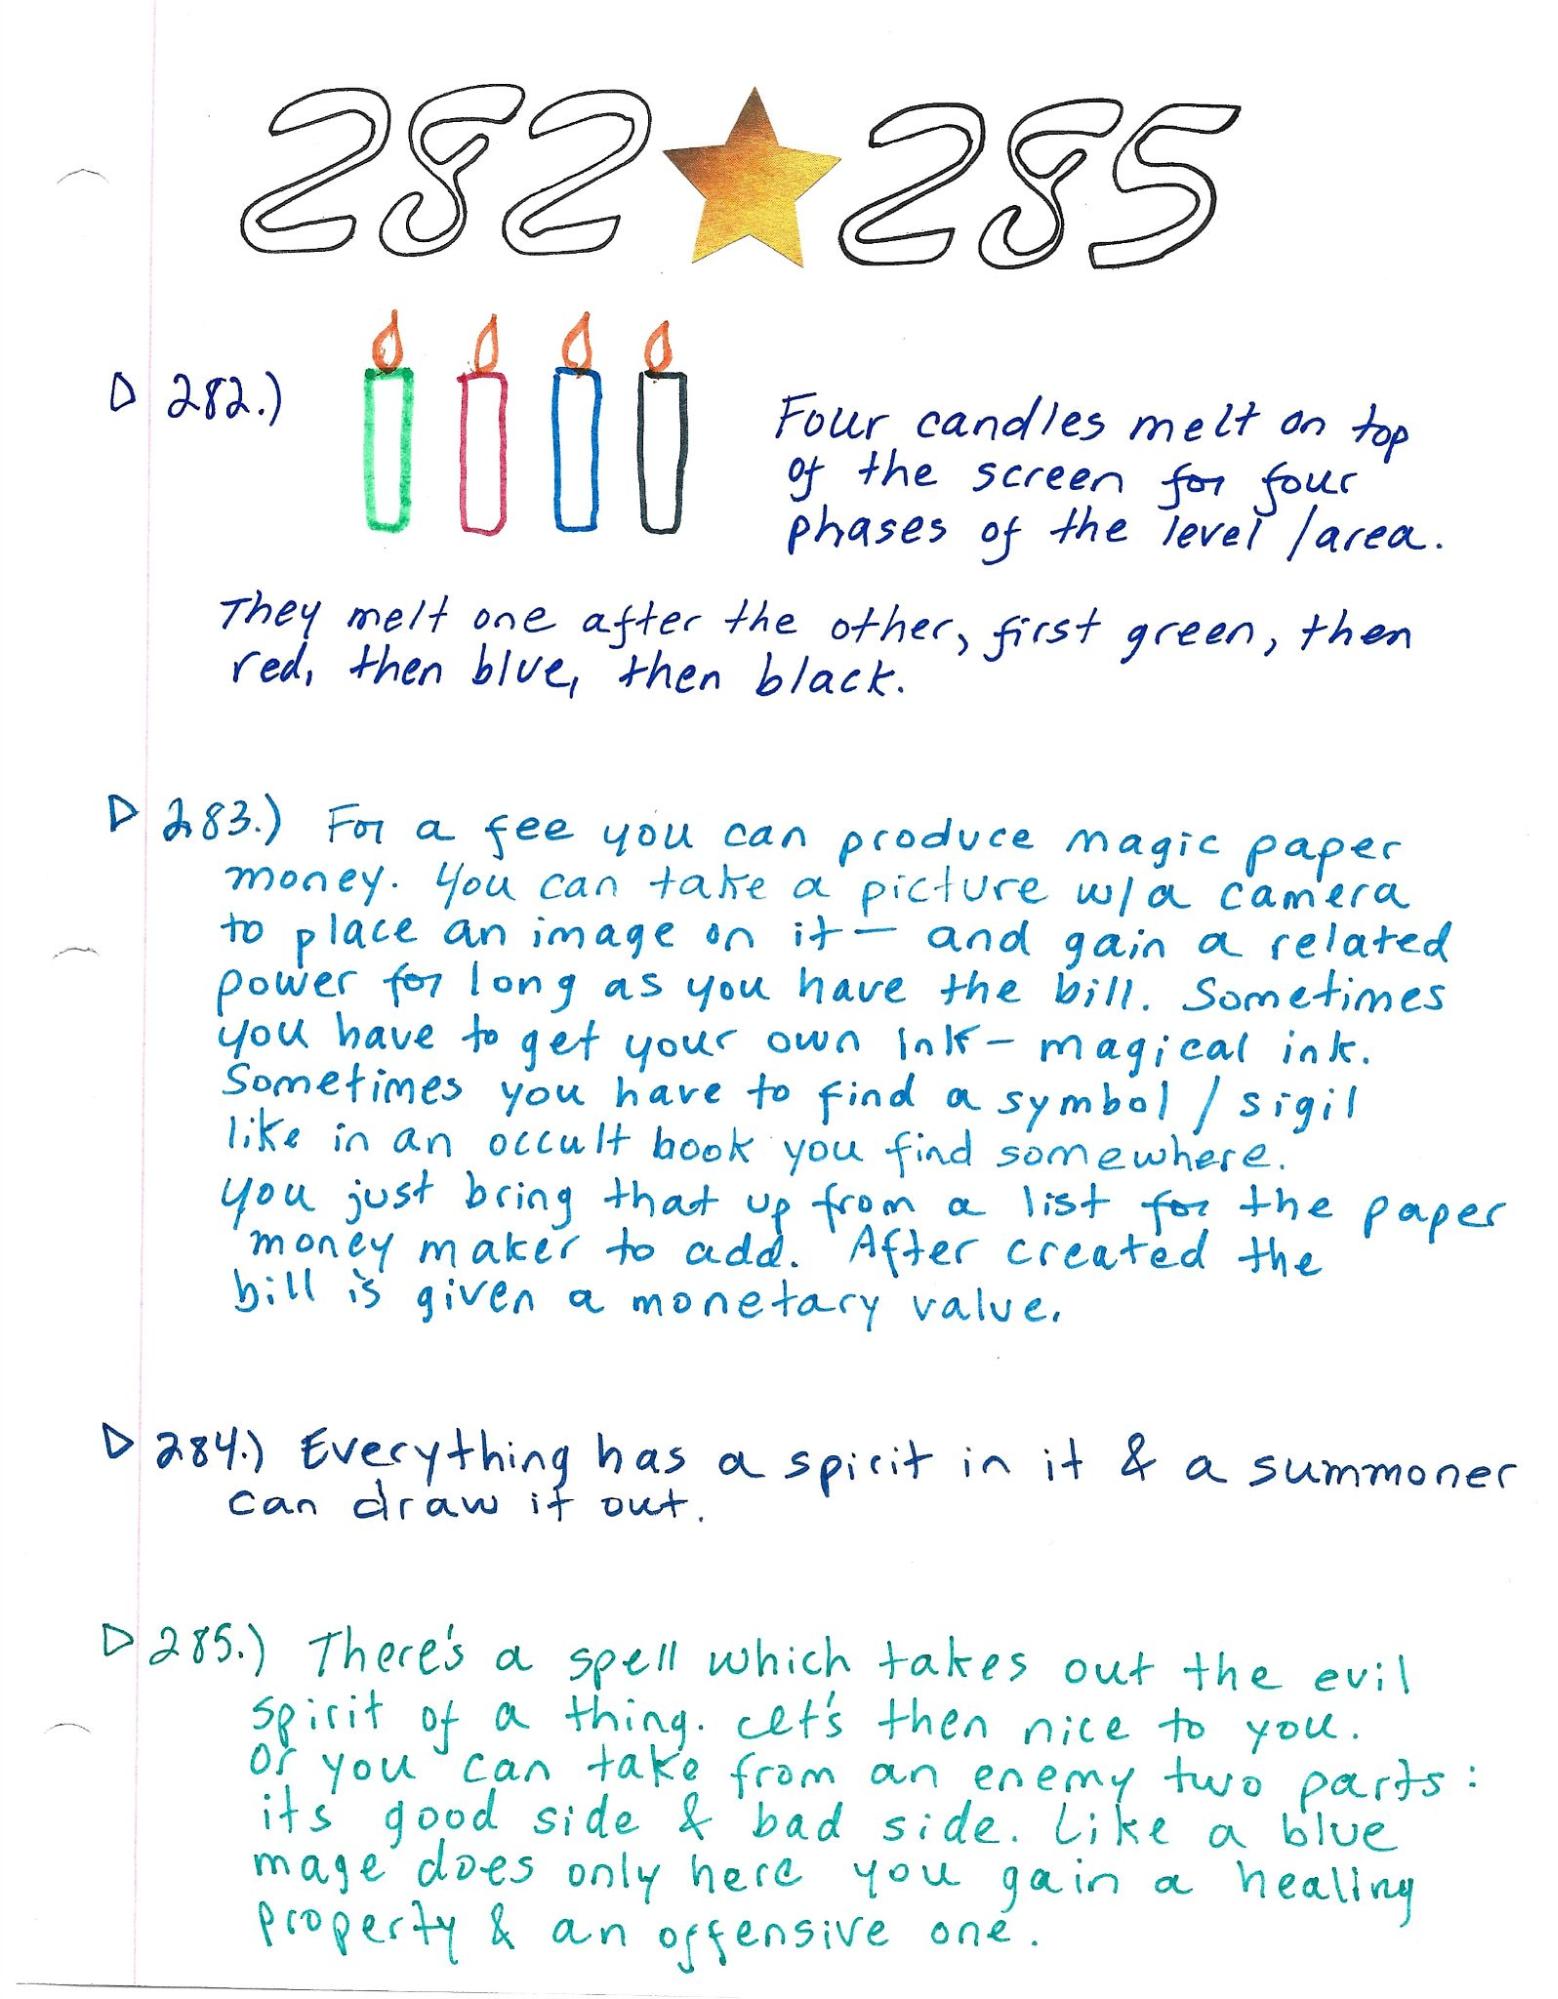 282 285
282.)
Four candles melt on top
of the screen for four
phases of the level / area.
They melt one after the other, first green, then
red, then blue, then black.
283.) For a fee you can produce magic paper
money. You can take a picture w/ a camera
to place an image on it — and gain a related
power for long as you have the bill. Sometimes
you have to get your own ink — magical ink.
Sometimes you have to find a symbol / sigil
like in an occult book you find somewhere.
You just bring that up from a list for the paper
money maker to add. After created the
bill is given a monetary value.
284.) Everything has a spirit in it & a summoner
can draw it out.
285.) There's a spell which takes out the evil
spirit of a thing. It's then nice to you.
Or you can take from an enemy two parts:
its good side & bad side. Like a blue
mage does only here you gain a healing
property & an offensive one.